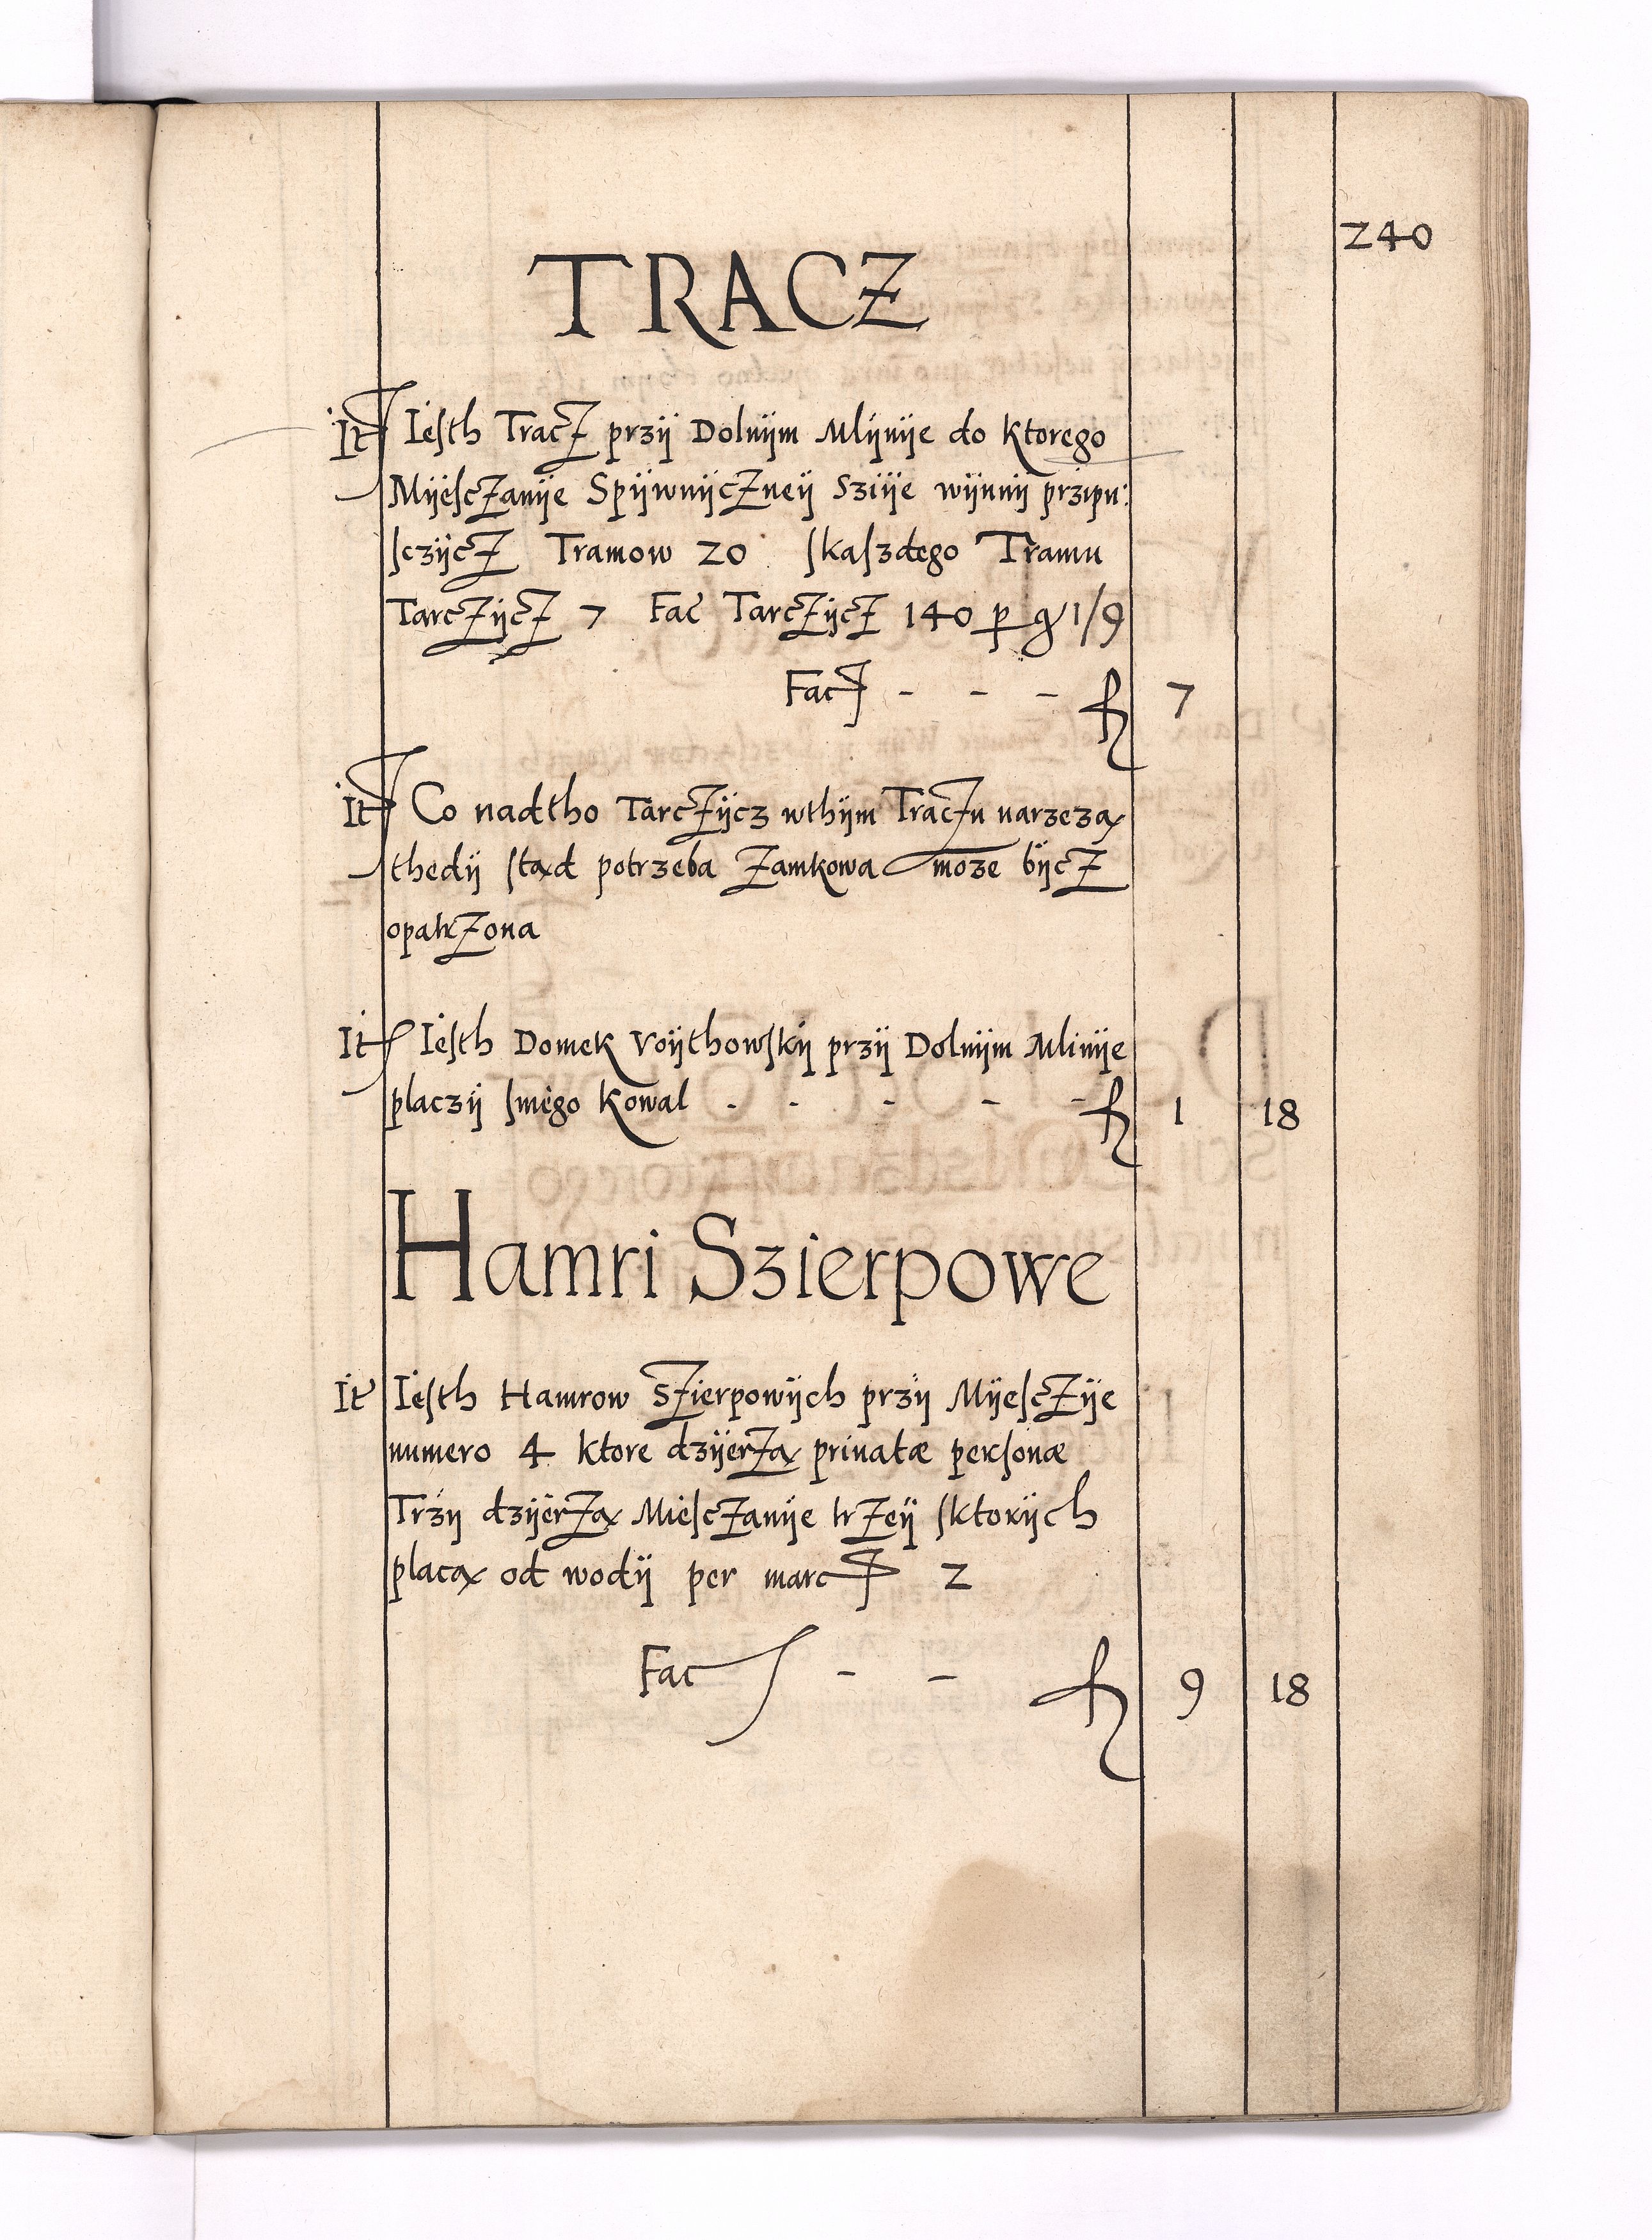 240
TRACZ
It Iesth Tracz przÿ Dolnÿm Mlÿnÿe do ktorego
Mÿesczanÿe SpÿwnÿcZneÿ Szÿe wÿnnÿ przipu:
sczÿcZ Tramow 20 skaszdego Tramu
TarcZÿcZ 7 Fac TarcZÿcZ 140 p gr 1/9
Fac - - - fl 7
It Co nadtho TarcZÿcz wthÿm Traczu narzeza̧
thedÿ sta̧d potrzeba Zamkowa moze bÿcZ
opatrZona
It Iesth Domek Voÿthowskÿ przÿ Dolnÿm Mlinÿe
placzÿ snie̊go Kowal - - - - - fl 1 18
Hamri Szierpowe
It Iesth Hamrow SZierpowÿch przÿ MÿescZÿe
numero 4 ktore dzÿerZa̧ priuatæ personæ
Trzÿ dzÿerZa̧ MiescZanÿe trZeÿ sktorÿch
placa̧ od wodÿ per marc 2
Fac - - fl 9 18